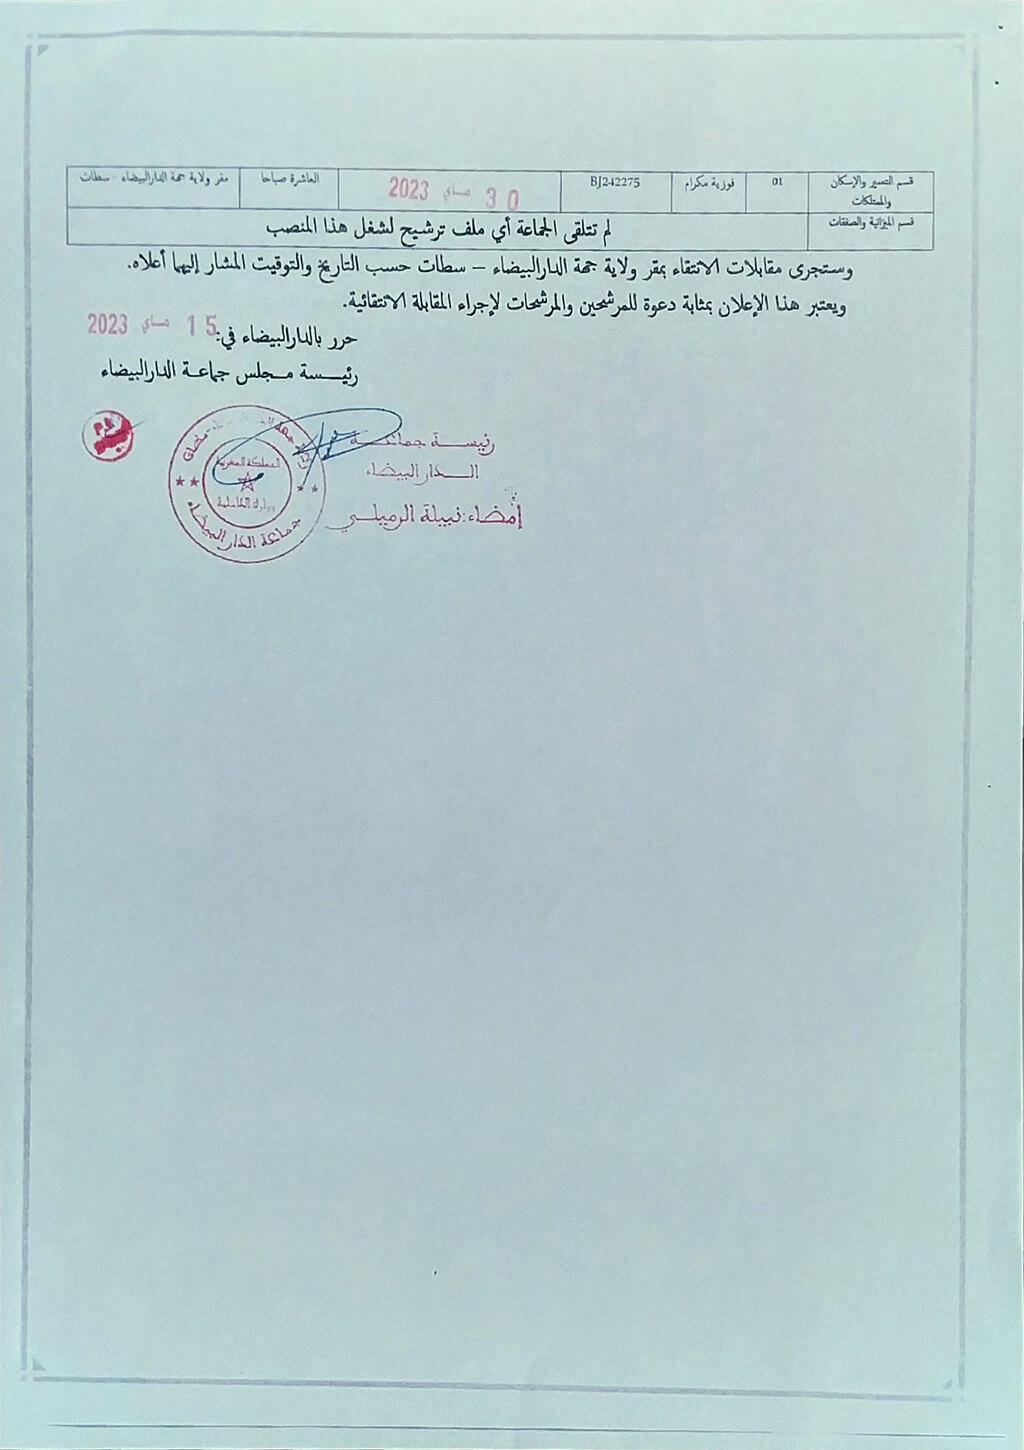 قسم التعمير والإسكان والممتلكات 01 فوزية مكرام BJ242275 30 ماي 2023 العاشرة صباحا مقر ولاية جهة الدارالبيضاء - سطات
قسم الميزانية والصفقات لم تتلقى الجماعة أي ملف ترشيح لشغل هذا المنصب
وستجرى مقابلات الانتقاء بمقر ولاية جهة الدارالبيضاء – سطات حسب التاريخ والتوقيت المشار إليهما أعلاه.
ويعتبر هذا الإعلان بمثابة دعوة للمرشحين والمرشحات لإجراء المقابلة الانتقائية.
حرر بالدارالبيضاء في: 15 ماي 2023
رئيسة مجلس جماعة الدارالبيضاء
رئيسة جماعة
الدار البيضاء
إمضاء: نبيلة الرميلي
المملكة المغربية
وزارة الداخلية
جماعة الدار البيضاء